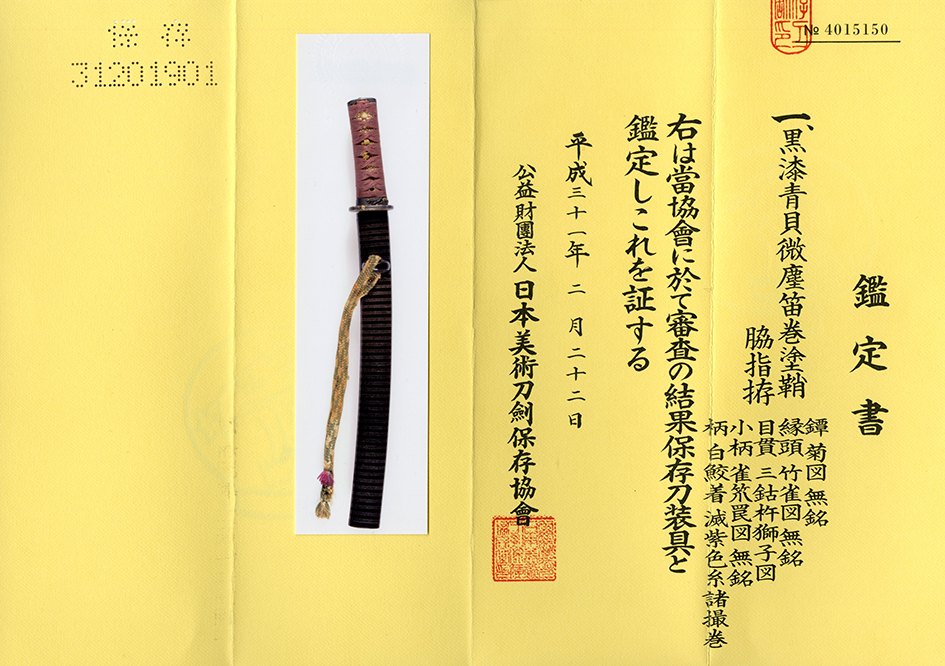 № 4015150
鑑定書
一、黒漆青貝微塵笛巻塗鞘
脇指拵
鐔 菊図 無銘
縁頭 竹雀図 無銘
目貫 三鈷杵獅子図
小柄 雀 罠図 無銘
柄 白鮫着 滅紫色糸諸撮巻
右は當協會に於て審査の結果保存刀装具と
鑑定しこれを証する
平成三十一年 二 月 二十二日
公益財團法人 日本美術刀劍保存協會
保 存
31201901